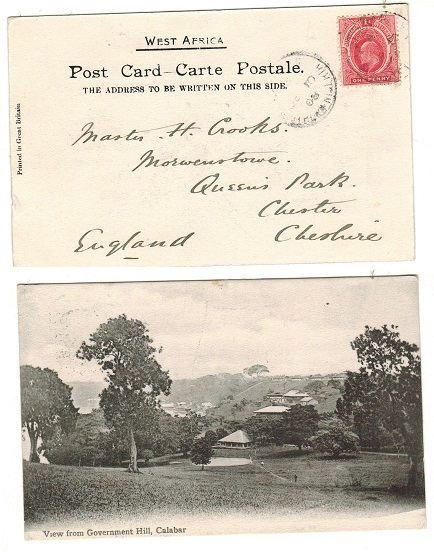 WEST AFRICA
Post Card—Carte Postale.
THE ADDRESS TO BE WRITTEN ON THIS SIDE.
Printed in Great Britain
Master H. Crooks.
Morwenstowe.
Queen's Park.
Chester
Cheshire
England
ONE PENNY
View from Government Hill, Calabar